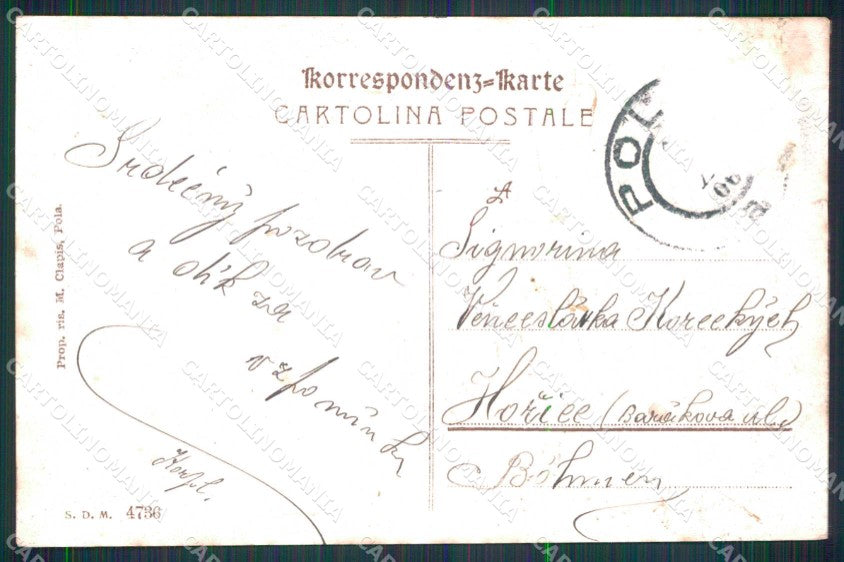 Korrespondenz=Karte
CARTOLINA POSTALE
Srdečný pozdrav
a dík za
vzpomínku
Prop. ris. M. Clapis, Pola.
S. D. M. 4736
POLA
Signorina
Věnceslávka Koreckých
Hořice (Barákova ul.)
Böhmen
CARTOLINOMANIA